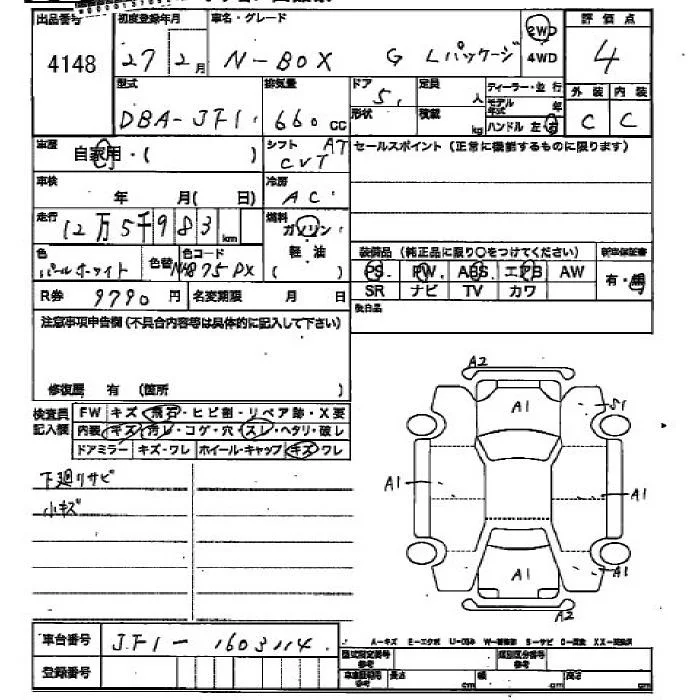 出品番号 初度登録年月 車名・グレード 2WD 評価点
4148 27 2月 N-BOX G Lパッケージ 4WD 4
型式 排気量 ドア 定員 ディーラー・並行 外装 内装
DBA-JF1 660cc 5 人 モデル年式 年 C C
形状 積載 kg ハンドル 左・右
車歴 自家用・( ) シフト AT CVT セールスポイント(正常に機能するものに限ります)
車検 年 月( 日) 冷房 AC
走行 12万5千983km 燃料 ガソリン・軽油( )
色 パールホワイト 色替 色コード NH875PX 装備品(純正品に限り○をつけてください) 新車保証書
PS PW ABS エアB AW 有・無
R券 9790円 名変期限 月 日 SR ナビ TV カワ
注意事項申告欄(不具合内容等は具体的に記入して下さい) 後日品
修復歴 有(箇所 )
検査員記入欄 FW キズ・飛石・ヒビ割・リペア跡・X要
内装 キズ・汚レ・コゲ・穴・スレ・ヘタリ・破レ
ドアミラー キズ・ワレ ホイール・キャップ キズ・ワレ
下廻りサビ
小キズ
A2
A1 S1
A1 A1
A1 A1
A2
車台番号 JF1-1603114
A-キズ E-エクボ U-凹み S-サビ
型式指定番号 参考 類別区分番号 参考
登録番号 長さ cm 幅 cm 高さ cm